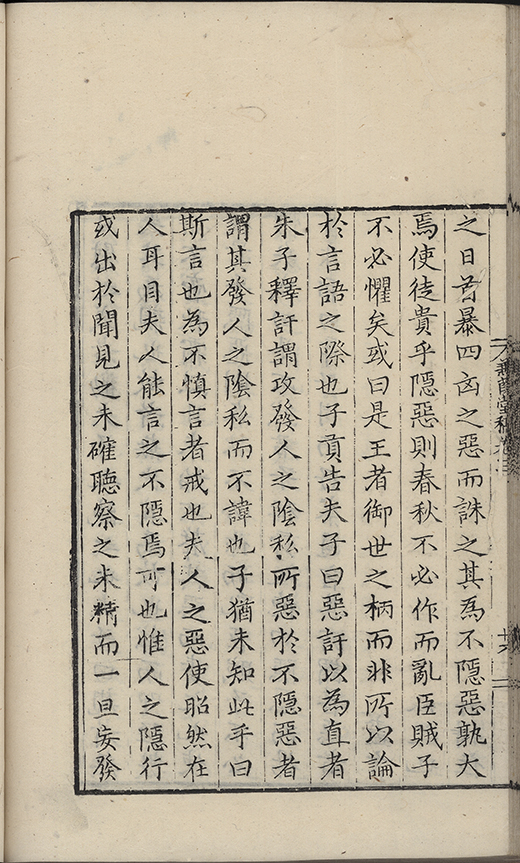 之日首暴四凶之惡而誅之其為不隱惡孰大
焉使徒貴乎隱惡則春秋不必作而亂臣賊子
不必懼矣或曰是王者御世之柄而非所以論
於言語之際也子貢告夫子曰惡訐以為直者
朱子釋訐謂攻發人之陰私所惡於不隱惡者
謂其發人之陰私而不諱也子猶未知此乎曰
斯言也為不慎言者戒也夫人之惡使昭然在
人耳目夫人能言之不隱焉可也惟人之隱行
或出於聞見之未確聽察之未精而一旦妄發